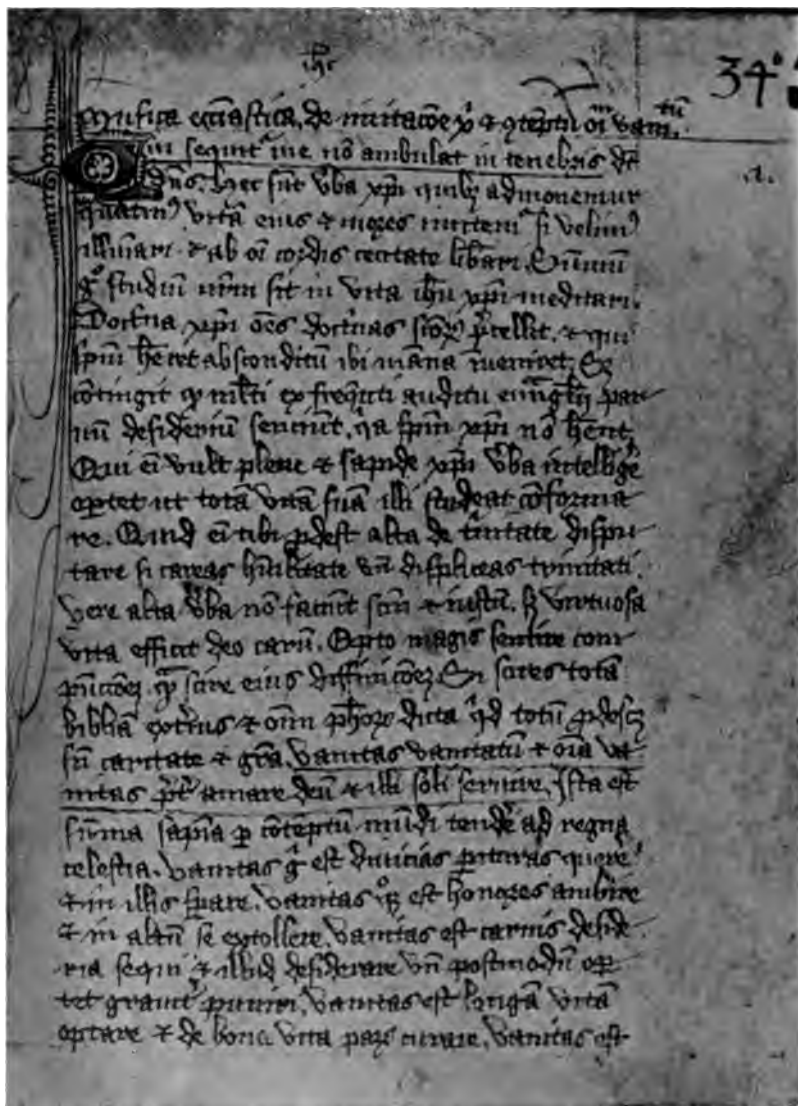 ih̅c
34
Musica eccl̅iastica. de imitac̅oe xp̅i ⁊ ꝯte̅ptu oi̅m vani.tu̅
Qui sequit᷑ me no̅ ambulat in tenebris dic̅
dn̅s. hec su̅t v̓ba xp̅i quibꝫ admonemur
quatin᷒ vita̅ eius ⁊ mores imitem᷑ si velim᷒
illu̅i̅ari ⁊ ab oi̅ cordis cecitate lib̅ari. Su̅mu̅
gͦ studiu̅ nr̅m sit in vita ih̅u xp̅i meditari.
Doctͥna xp̅i oe̅s doctͥnas sc̅oꝝ p̅cellit. ⁊ qui
sp̅m h̅eret absconditu̅ ibi man̅a i̅veniret. Sꝫ
co̅tingit qꝫ ml̅ti ex freque̅ti auditu eua̅gl̅ij par
uu̅ desideriu̅ senciu̅t. qͥa sp̅m xp̅i no̅ h̅ent.
Qui e̅i vult plene ⁊ sapide xp̅i v̓ba intellig̅e
oꝑtet ut tota̅ vita̅ sua̅ illi studeat co̅forma
re. Quid e̅i tibi ꝓdest alta de t̓nitate dispu
tare si careas hu̅ilitate vn̅ displiceas trinitati.
vere alta v̓ba no̅ faciu̅t sc̅m ⁊ iustu̅. sꝫ virtuosa
vita efficit deo caru̅. Opto magis sentire com
pu̅ccoe̅ꝫ. qͣ̅ scire eius diffinicoe̅ꝫ. Si scires tota̅
biblia̅ ext̓ius ⁊ om̅i ph̅oꝝ dicta qͥd totu̅ ꝓdess3
sn̅ caritate ⁊ gr̅a. vanitas vanitatu̅ ⁊ oi̅a va
nitas p̅t̓ amare deu̅ ⁊ illi soli seruire. Ista est
su̅ma sapi̅a ꝑ co̅te̅ptu̅ mu̅di tend̓e ad regna
celestia. vanitas gͥ est diuicias ꝑituras quer̓e
⁊ in illis sꝑare. vanitas qͦꝫ est honores ambire
⁊ in altu̅ se extollere. vanitas est carnis deside
ria sequi ⁊ illud desiderare vn̅ postmodu̅ opor
tet grauit̓ puniri. vanitas est longa̅ vita̅
optare ⁊ de bona vita paꝝ curare. vanitas est